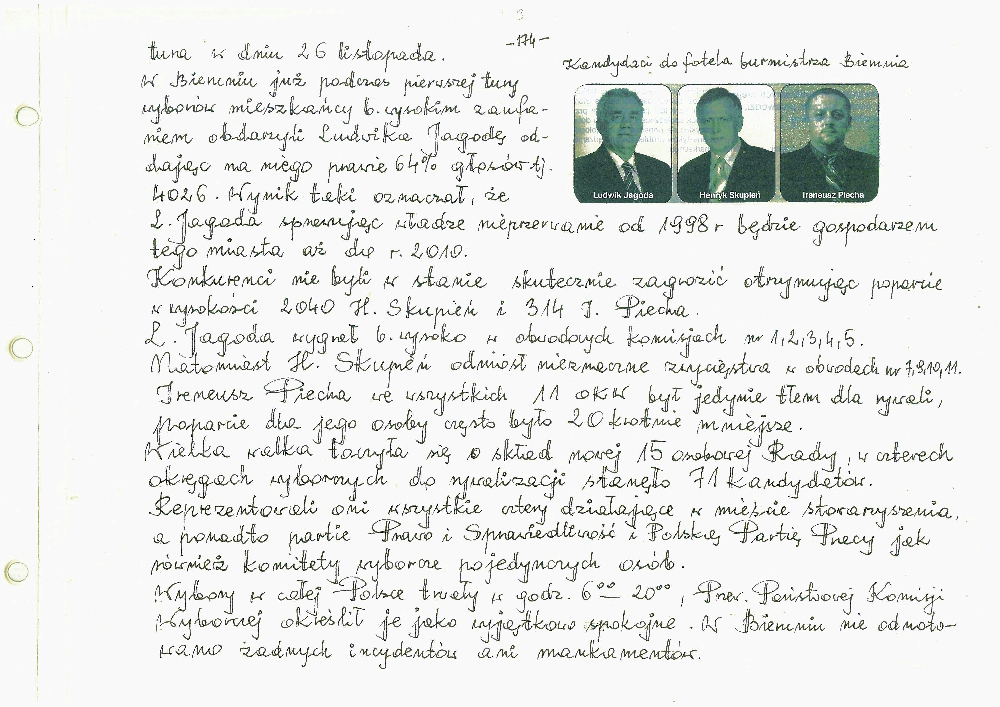 -174-
tura w dniu 26 listopada.
Kandydaci do fotela burmistrza Bierunia
W Bieruniu już podczas pierwszej tury
wyborów mieszkańcy b. wysokim zaufa-
niem obdarzyli Ludwika Jagodę od-
dając na niego prawie 64% głosów tj.
4026. Wynik taki oznaczał, że
Ludwik Jagoda
Henryk Skupień
Ireneusz Piecha
L. Jagoda sprawując władzę nieprzerwanie od 1998 r będzie gospodarzem
tego miasta aż do r. 2010.
Konkurenci nie byli w stanie skutecznie zagrozić otrzymując poparcie
w wysokości 2040 H. Skupień i 314 I. Piecha.
L. Jagoda wygrał b. wysoko w obwodowych komisjach nr 1,2,3,4,5.
Natomiast H. Skupień odniósł nieznaczne zwycięstwa w obwodach nr 7,9,10,11.
Ireneusz Piecha we wszystkich 11 OKW był jedynie tłem dla rywali,
poparcie dla jego osoby często było 20 krotnie mniejsze.
Wielka walka toczyła się o skład nowej 15 osobowej Rady, w czterech
okręgach wyborczych do rywalizacji stanęło 71 kandydatów.
Reprezentowali oni wszystkie cztery działające w mieście stowarzyszenia,
a ponadto partie Prawo i Sprawiedliwość i Polską Partię Pracy jak
również komitety wyborcze pojedynczych osób.
Wybory w całej Polsce trwały w godz. 6⁰⁰ – 20⁰⁰, Prew. Państwowej Komisji
Wyborczej określił je jako wyjątkowo spokojne. W Bieruniu nie odnoto-
wano żadnych incydentów ani mankamentów.